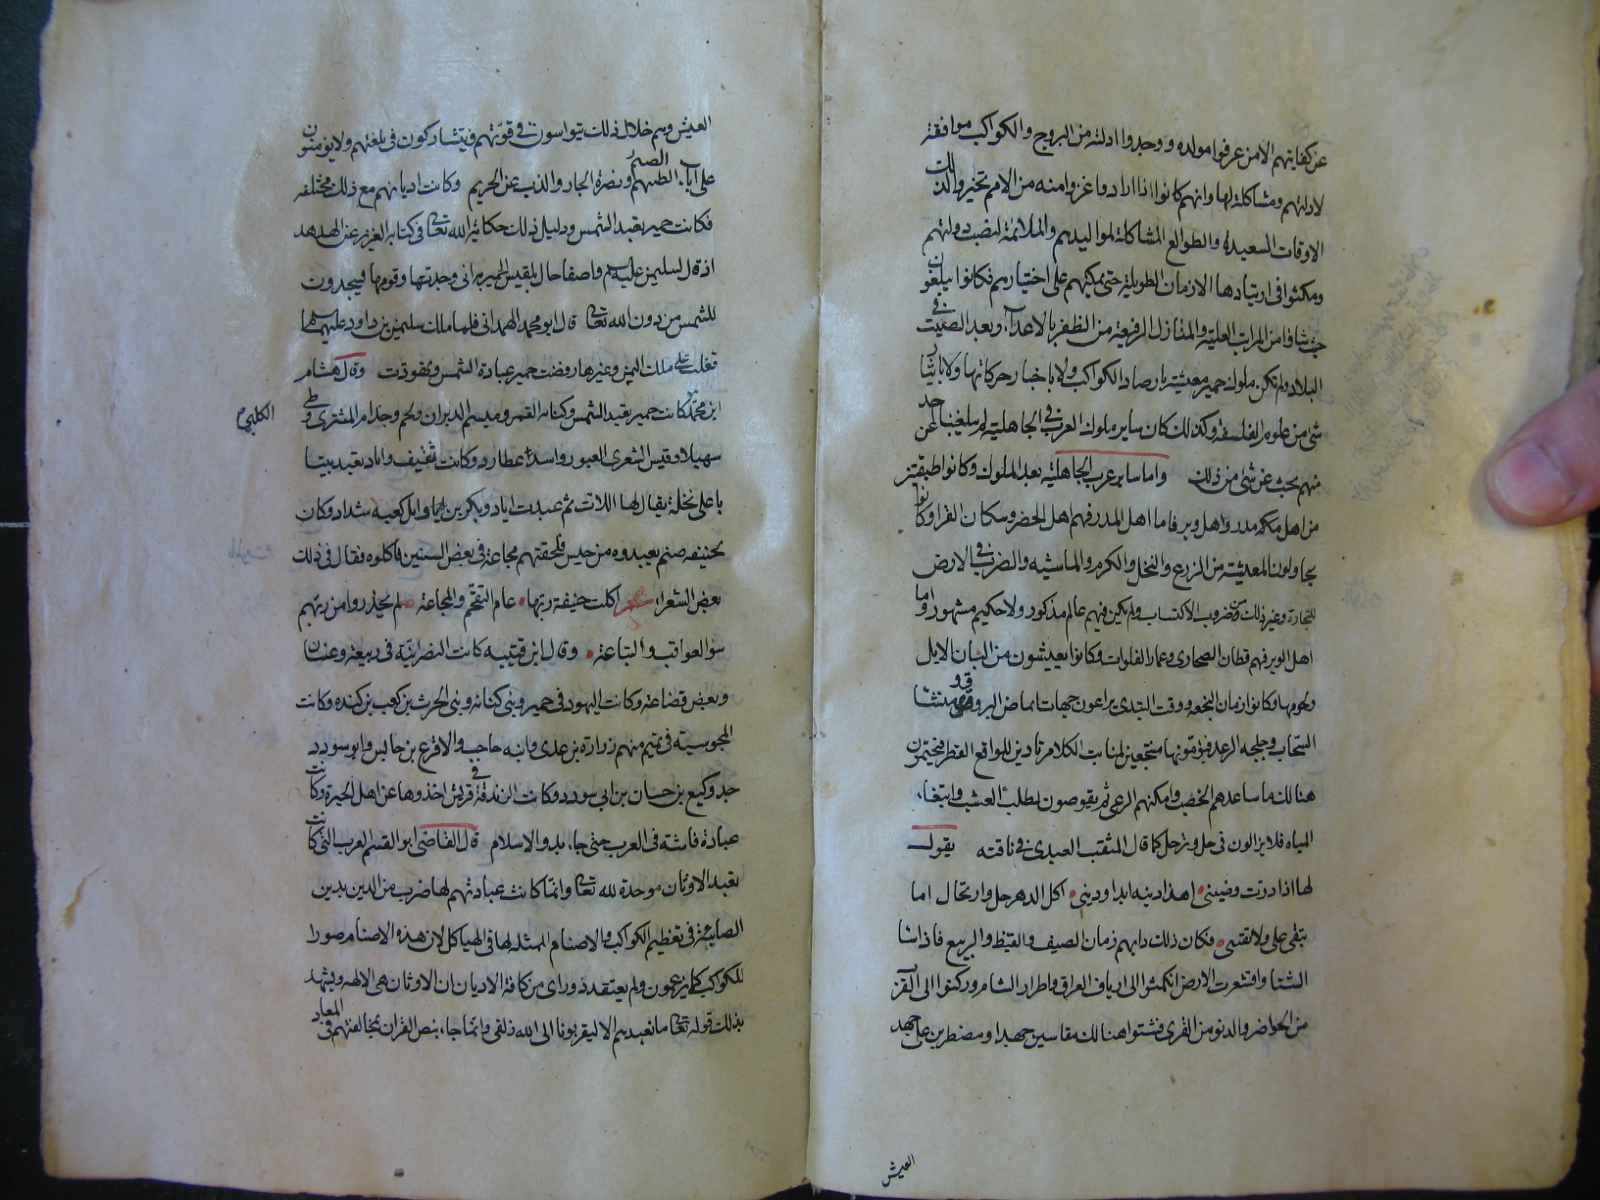 عن كفايتهم الا من عرفوا مولده ووجدوا ادلته من البروج والكواكب موافقة
لادلتهم ومشاكلة لها وانهم كانوا اذا ارادوا غزو امة من الامم تخيروا لذلك
الاوقات السعيدة والطوالع المشاكلة لمواليدهم والملائمة لنصبة دولتهم
ومكثوا في ارتيادها الازمان الطويلة حتى يمكنهم على اختيارهم فكانوا يبلغون
حيث شاؤا من المراتب العلية والمنازل الرفيعة من الظفر بالاعداء وبعد الصيت في
البلاد ولم تكن ملوك حمير معتنية بارصاد الكواكب ولا باختبار حركاتها ولا بايثار
شئ من علوم الفلسفة وكذلك كان ساير ملوك العرب في الجاهلية لم يبلغنا عن احد
منهم بحث عن شئ من ذلك واما ساير عرب الجاهلية بعد الملوك وكانوا طبقتين
من اهل مدر واهل وبر فاما اهل المدر فهم اهل الحضر وسكان القرا وكانوا
يحاولون المعيشة من الزرع والنخل والكرم والماشية والضرب في الارض
للتجارة وغير ذلك من ضروب الاكتساب ولم يكن فيهم عالم مذكور ولا حكيم مشهور واما
اهل الوبر فهم قطان الصحارى وعمار الفلوات وكانوا يعيشون من البان الابل
ولحومها وكانوا ازمان النجعة ووقت التبدي يراعون جهات ايماض البروق ومنشا
السحاب وجلجلة الرعد فيؤمونها منتجعين لمنابت الكلا مرتادين لمواقع القطر فيخيمون
هنالك ما ساعدهم الخصب وامكنهم الرعى ثم يقوضون لطلب العشب وابتغاء
المياه فلا يزالون في حل وترحل كما قال المثقب العبدي في ناقته يقول
لها اذا درت وضيني اهذا دينه ابدا وديني اكل الدهر حل وارتحال اما
تبقى على ولا تقيني فكان ذلك دابهم زمان الصيف والقيظ والربيع فاذا جاء
الشتا واقشعرت الارض انكمشوا الى ارياف العراق واطرار الشام وركنوا الى القرب
من الحواضر والدنو من القرى فشتوا هنالك مقاسين جهدا ومصطبرين على جهد
العيش
العيش وهم خلال ذلك يتواسون في قوتهم ويتشاركون في بلغتهم ولا يونون
على اباء الضيم ونصرة الجار والذب عن الحريم وكانت اديانهم مع ذلك مختلفه
فكانت حمير تعبد الشمس ودليل ذلك حكاية الله تعالى في كتابه العزيز عن الهدهد
اذ قال لسليمن عليه السلم واصفا حال بلقيس الحميرية انى وجدتها وقومها يسجدون
للشمس من دون الله تعالى قال ابو محمد الهمداني فلما ملك سليمن بن داود عليهما السلم
تغلب على ملك اليمن وغيرها رفضت حمير عبادة الشمس وتهودت وقال هشام
ابن محمد الكلبي كانت حمير تعبد الشمس وكنانه القمر وميسم الدبران ولخم وجذام المشترى وطي
سهيلا وقيس الشعرى العبور واسد عطارد وكانت ثقيف واياد تعبد بيتا
باعلى نخلة يقال لها اللات ثم عبدت اياد وبكر بن وايل كعبه شداد وكان
لحنيفه صنم يعبدوه من حيس فلحقتهم مجاعة في بعض السنين فاكلوه فقال في ذلك
بعض الشعراء شعر اكلت حنيفة ربها عام التقحم والمجاعة لم يحذروا من ربهم
سوء العواقب والتباعة وقال ابن قتيبه كانت النصرانية في ربيعة وغسان
وبعض قضاعة وكانت اليهود في حمير وبني كنانه وبني الحرث بن كعب بن كنده وكانت
المجوسية في تميم منهم زرارة بن عدى وابنه حاجب والاقرع بن حابس وابو سودد
جد وكيع بن حسان بن ابي سودد وكانت الزندقة في قريش اخذوها عن اهل الحيرة وكانت
عبادة فاشية في العرب حتى جاء بدو الاسلام قال القاضي ابو القسم العرب التي كانت
تعبد الاوثان موحدة لله تعالى وانما كانت عبادتهم لها ضرب من الدين بدين
الصابئين في تعظيم الكواكب والاصنام الممثله لها في الهياكل لان هذه الاصنام صورا
للكواكب كما يزعمون ولم يعتقد ذو راى من كافة الاديان ان الاوثان هي الالهه ويشهد
بذلك قوله تعالى ما نعبدهم الا ليقربونا الى الله زلفى وانما جاء بنص القران بمخالفتهم في المعاد